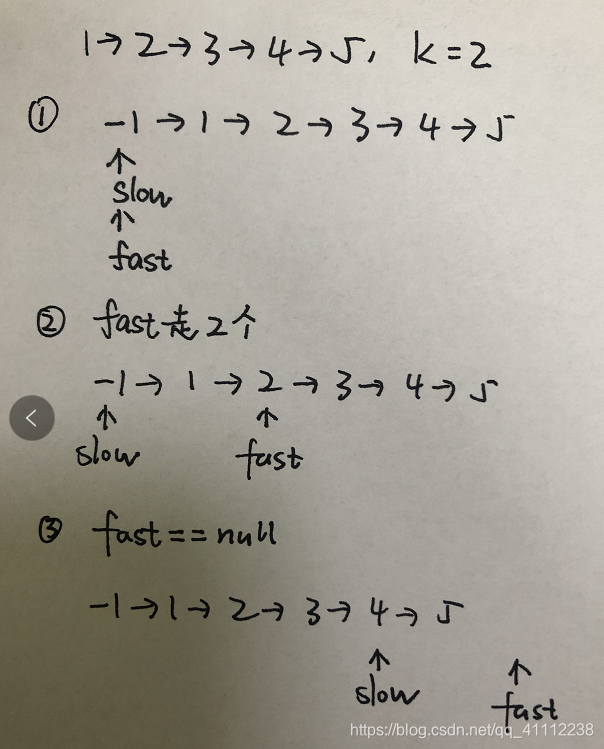 1→2→3→4→5, k=2
① -1→1→2→3→4→5
↑
slow
↑
fast
② fast走2个
-1→1→2→3→4→5
↑ ↑
slow fast
③ fast==null
-1→1→2→3→4→5
↑ ↑
slow fast
https://blog.csdn.net/qq_41112238